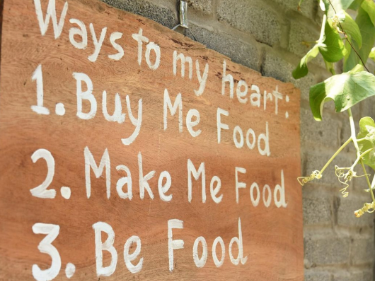 Ways to my heart:
1. Buy Me Food
2. Make Me Food
3. Be Food